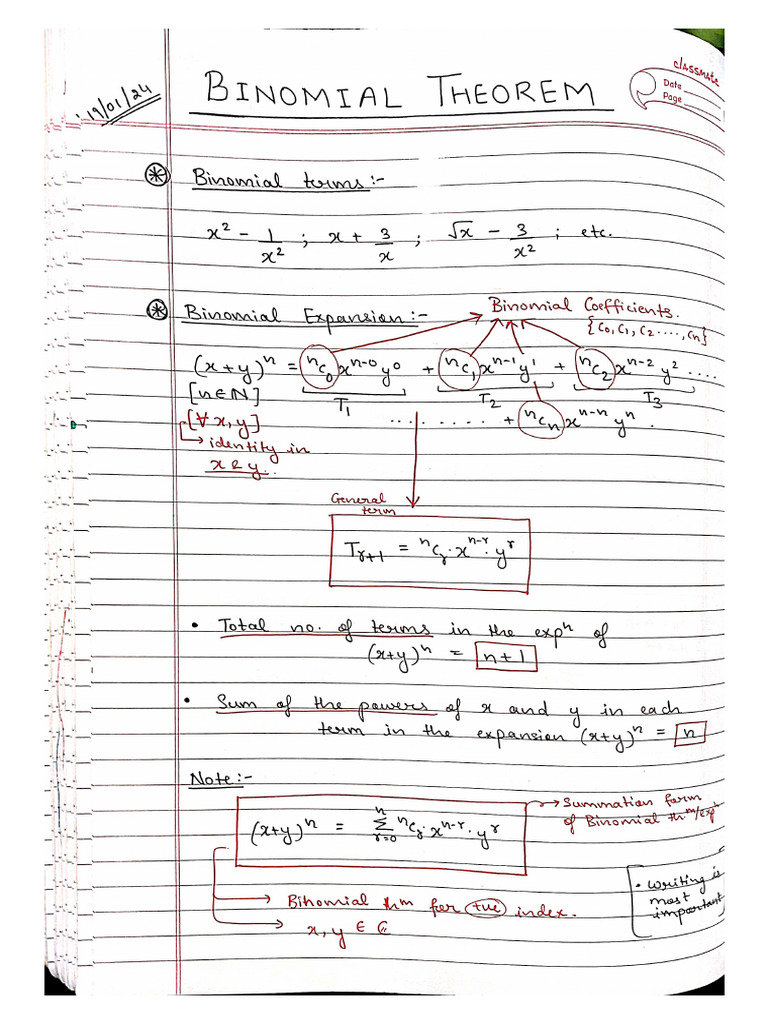 19/01/24
BINOMIAL THEOREM
classmate
Date
Page
⊛ Binomial terms :-
x² - 1/x² ; x + 3/x ; √x - 3/x² ; etc.
⊛ Binomial Expansion :-
Binomial Coefficients.
{C₀, C₁, C₂ ...., Cₙ}
(x+y)ⁿ = ⁿC₀ xⁿ⁻⁰ y⁰ + ⁿC₁ xⁿ⁻¹ y¹ + ⁿC₂ xⁿ⁻² y² ....
[n∈ℕ]
T₁ T₂ T₃
[∀ x, y]
......... + ⁿCₙ xⁿ⁻ⁿ yⁿ.
→ identity in
x & y.
General
term
Tᵣ₊₁ = ⁿCᵣ · xⁿ⁻ʳ · yʳ
• Total no. of terms in the expⁿ of
(x+y)ⁿ = n+1
• Sum of the powers of x and y in each
term in the expansion (x+y)ⁿ = n
Note :-
(x+y)ⁿ = ⁿΣᵣ₌₀ ⁿCᵣ · xⁿ⁻ʳ · yʳ
→ Summation form
of Binomial thᵐ/expⁿ
→ Binomial thm for +ve index.
→ x, y ∈ ℂ
• Writing is
most
important